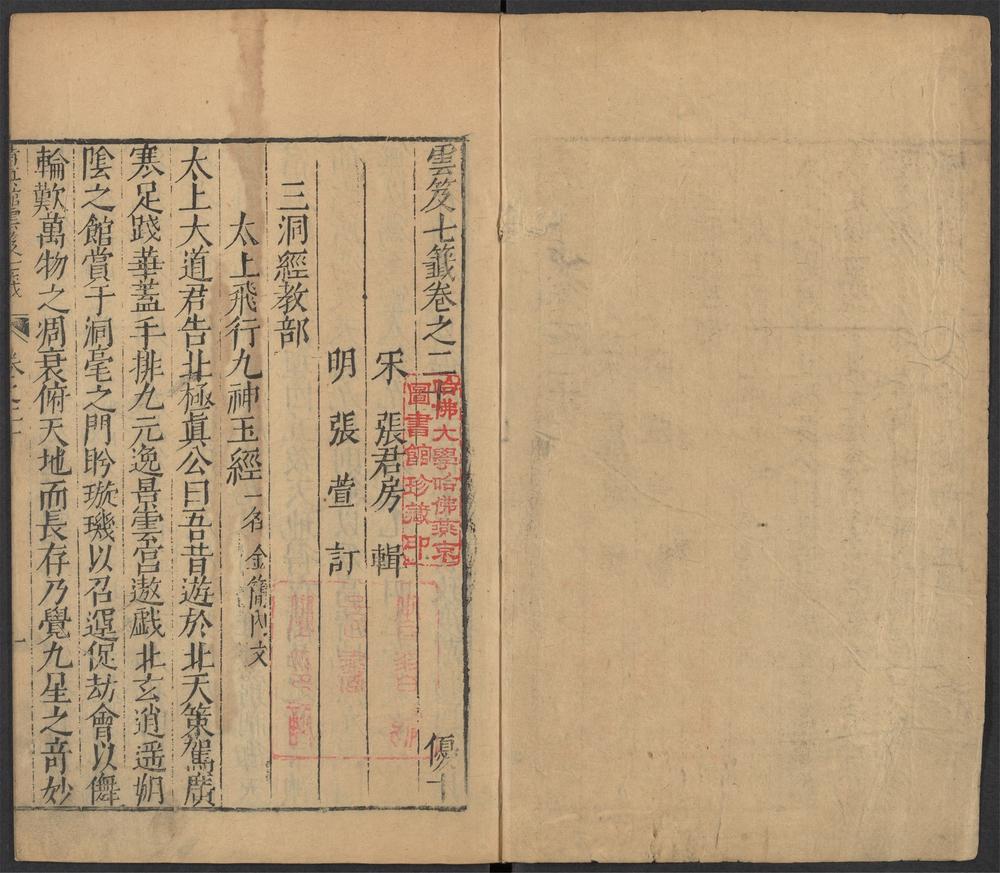 雲笈七籤卷之二十 優十
宋 張君房 輯
明 張萱 訂
三洞經教部
太上飛行九神玉經 一名金簡內文
太上大道君告北極眞公曰吾昔遊於北天策駕廣
寒足踐華蓋手排九元逸景雲宮遨戲北玄逍遥朔
陰之館賞于洞毫之門盻璇璣以召運促劫會以儛
輪歎萬物之凋衰俯天地而長存乃覺九星之奇妙
卷之二十 一
哈佛大學哈佛燕京
圖書館珍藏印